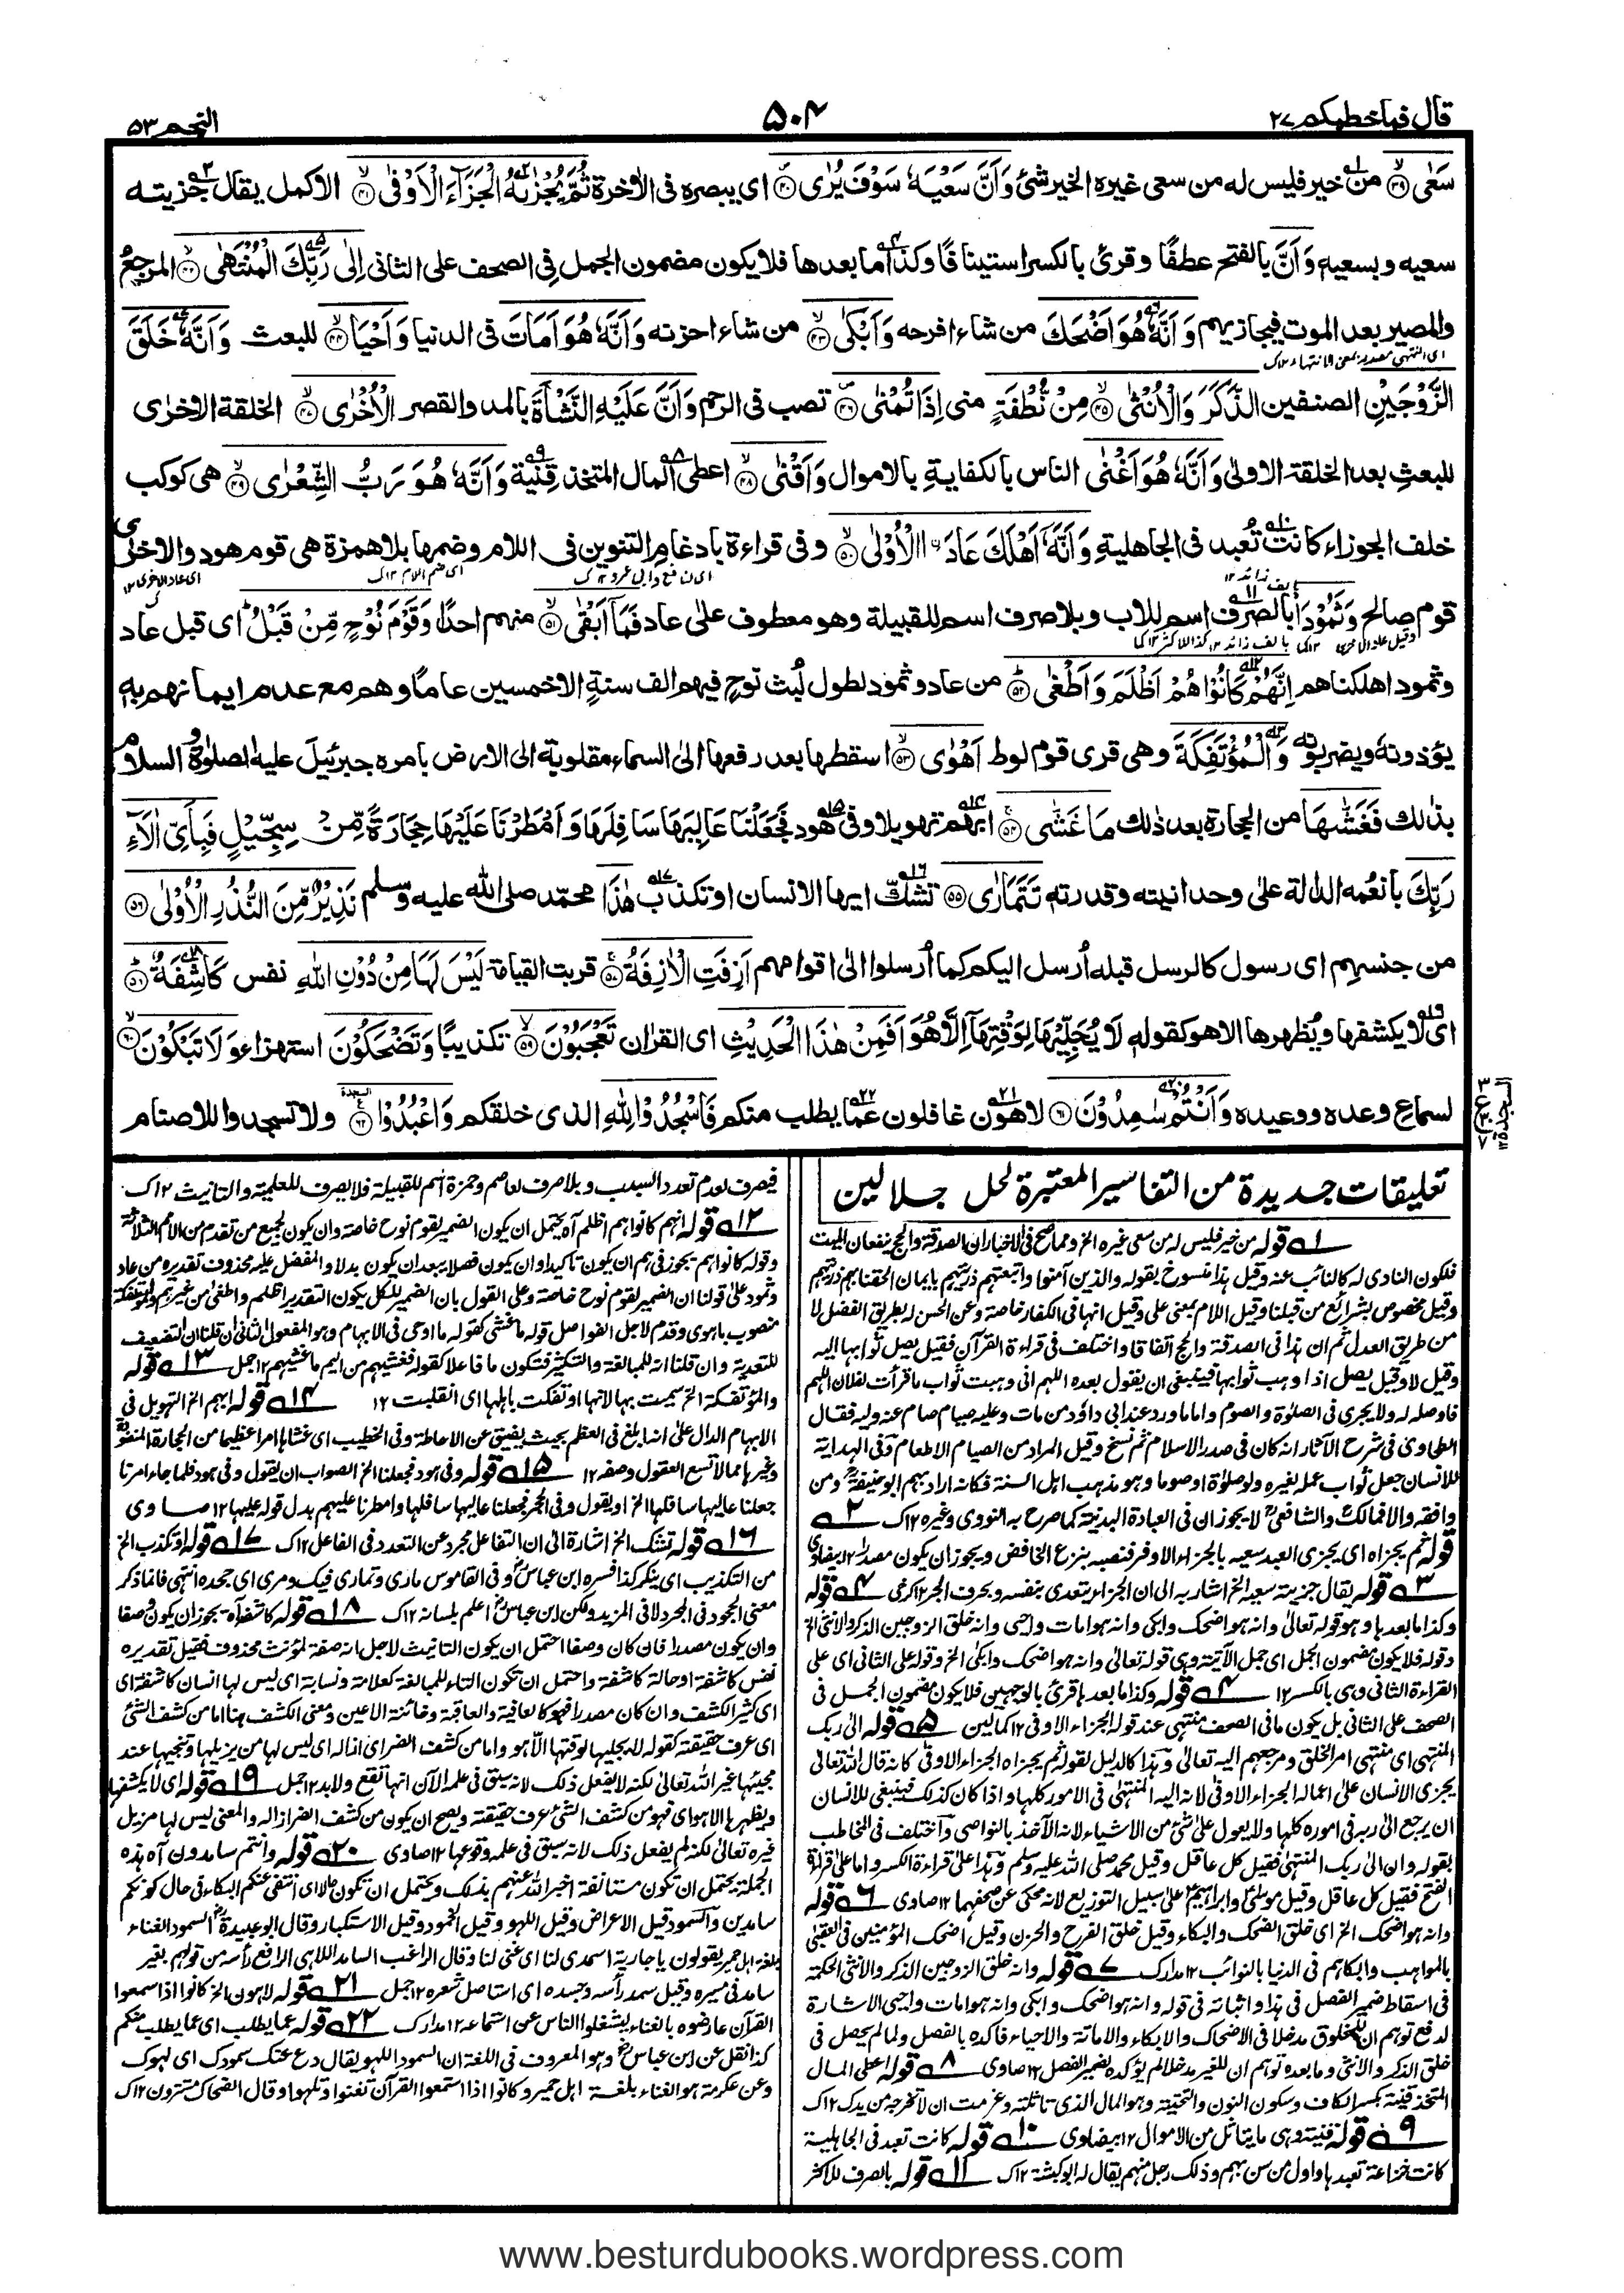 قال فما خطبكم ٢٧
٥٠٤
النجم ٥٣
سَعٰى ﴿٣٩﴾ من خير فليس له من سعى غيره الخير شئ وَاَنَّ سَعْيَهٗ سَوْفَ يُرٰى ﴿٤٠﴾ اى يبصره فى الاٰخرة ثُمَّ يُجْزٰىهُ الْجَزَآءَ الْاَوْفٰى ﴿٤١﴾ الاكمل يقال جزيته
سعيه وبسعيه وَاَنَّ بالفتح عطفًا وقرئ بالكسر استينافًا وكذا ما بعدها فلا يكون مضمون الجمل فى الصحف على الثانى اِلٰى رَبِّكَ الْمُنْتَهٰى ﴿٤٢﴾ المرجع
والمصير بعد الموت فيجازيهم وَاَنَّهٗ هُوَ اَضْحَكَ من شاء افرحه وَاَبْكٰى ﴿٤٣﴾ من شاء احزنه وَاَنَّهٗ هُوَ اَمَاتَ فى الدنيا وَاَحْيَا ﴿٤٤﴾ للبعث وَاَنَّهٗ خَلَقَ
اى المنتهى مصدر بمعنى الانتهاء ١٢ك
الزَّوْجَيْنِ الصنفين الذَّكَرَ وَالْاُنْثٰى ﴿٤٥﴾ مِنْ نُّطْفَةٍ منى اِذَا تُمْنٰى ﴿٤٦﴾ تصب فى الرحم وَاَنَّ عَلَيْهِ النَّشْاَةَ بالمد والقصر الْاُخْرٰى ﴿٤٧﴾ الخلقة الاخرٰى
للبعث بعد الخلقة الاولىٰ وَاَنَّهٗ هُوَ اَغْنٰى الناس بالكفاية بالاموال وَاَقْنٰى ﴿٤٨﴾ اعطى المال المتخذ قنية وَاَنَّهٗ هُوَ رَبُّ الشِّعْرٰى ﴿٤٩﴾ هى كوكب
خلف الجوزاء كانت تُعبد فى الجاهلية وَاَنَّهٗۤ اَهْلَكَ عَادَۨا الْاُوْلٰى ﴿٥٠﴾ وفى قراءة بادغام التنوين فى اللام وضمها بلا همزة هى قوم هود والاخرٰى
اى نافع وابى عمرو ١٢ك اى ضم اللام ١٢ك اى عاد الاخرى ١٢
قوم صالح وَثَمُوْدَا۟ بالصرف اسم للاب وبلا صرف اسم للقبيلة وهو معطوف علىٰ عاد فَمَاۤ اَبْقٰى ﴿٥١﴾ منهم احدًا وَقَوْمَ نُوْحٍ مِّنْ قَبْلُ اى قبل عاد
وثمود اهلكناهم اِنَّهُمْ كَانُوْا هُمْ اَظْلَمَ وَاَطْغٰى ﴿٥٢﴾ من عاد وثمود لطول لُبث نوح فيهم الف سنةٍ الا خمسين عامًا وهم مع عدم ايمانهم به
يؤذونهٗ ويضربونه وَالْمُؤْتَفِكَةَ وهى قرى قوم لوط اَهْوٰى ﴿٥٣﴾ اسقطها بعد رفعها الى السماء مقلوبة الى الارض بامره جبرئيل عليه الصلوٰة والسلام
بذٰلك فَغَشّٰهَا من الحجارة بعد ذٰلك مَا غَشّٰى ﴿٥٤﴾ ابهم تهويلا وفى هود فَجَعَلْنَا عَالِيَهَا سَافِلَهَا وَاَمْطَرْنَا عَلَيْهَا حِجَارَةً مِّنْ سِجِّيْلٍ فَبِاَىِّ اٰلَآءِ
رَبِّكَ بأنعمه الدالة علىٰ وحدانيته وقدرته تَتَمَارٰى ﴿٥٥﴾ تشك ايها الانسان او تكذب هٰذَا محمّد صلى الله عليه وسلم نَذِيْرٌ مِّنَ النُّذُرِ الْاُوْلٰى ﴿٥٦﴾
من جنسهم اى رسول كالرسل قبله اُرسل اليكم كما اُرسلوا الىٰ اقوامهم اَزِفَتِ الْاٰزِفَةُ ﴿٥٧﴾ قربت القيامة لَيْسَ لَهَا مِنْ دُوْنِ اللّٰهِ نفس كَاشِفَةٌ ﴿٥٨﴾
اى لا يكشفها ويُظهرها الا هو كقوله لَا يُجَلِّيْهَا لِوَقْتِهَاۤ اِلَّا هُوَ اَفَمِنْ هٰذَا الْحَدِيْثِ اى القراٰن تَعْجَبُوْنَ ﴿٥٩﴾ تكذيبًا وَتَضْحَكُوْنَ استهزاء وَلَا تَبْكُوْنَ ﴿٦٠﴾
لسماع وعده ووعيده وَاَنْتُمْ سٰمِدُوْنَ ﴿٦١﴾ لاهون غافلون عما يطلب منكم فَاسْجُدُوْا لِلّٰهِ الذى خلقكم وَاعْبُدُوْا ﴿٦٢﴾ ولا تسجدوا للاصنام
السجدة
تعليقات جديدة من التفاسير المعتبرة لحل جلالين
١ قوله من خير فليس له من سعى غيره الخ ومما صح فى الاخبار ان الصدقة والحج ينفعان الميت
وقيل مخصوص بشرائع من قبلنا وقيل اللام بمعنى على وقيل انها فى الكفار خاصة وعن الحسن له بطريق الفضل لا
من طريق العدل ثم ان هذا فى الصدقة والحج اتفاقا واختلف فى قراءة القرآن فقيل يصل ثوابها اليه
وقيل لا وقيل يصل اذا وهب ثوابها فينبغى ان يقول بعده اللهم انى وهبت ثواب ما قرأت لفلان اللهم
فاوصله له ولا يجرى فى الصلوٰة والصوم واما ما ورد عند ابى داؤد من مات وعليه صيام صام عنه وليه فقال
الطحاوى فى شرح الآثار انه كان فى صدر الاسلام ثم نسخ وقيل المراد من الصيام الاطعام وفى الهداية
للانسان جعل ثواب عمله لغيره ولو صلوٰة او صوما وهو مذهب اهل السنة فكانه اراد بهم ابو حنيفة ومن
وافقه والا فمالك والشافعى لا يجوزان فى العبادة البدنية كما صرح به النووى وغيره ١٢ك ٢
قوله ثم يجزاه اى يجزى العبد سعيه بالجزاء الاوفر فنصبه بنزع الخافض ويجوز ان يكون مصدرا ١٢ بيضاوى
٣ قوله يقال جزيته سعيه الخ اشار به الى ان الجزاء يتعدى بنفسه وبحرف الجر ١٢ كرخى ٤ قوله
وكذا ما بعدها وهو قوله تعالىٰ وانه هو اضحك وابكى وانه هو امات واحيى وانه خلق الزوجين الذكر والانثى الخ
وقوله فلا يكون مضمون الجمل اى جمل الآتية وهى قوله تعالىٰ وانه هو اضحك وابكىٰ الخ وقوله على الثانى اى على
القراءة الثانى وهى بالكسر ١٢ ٤ قوله وكذا ما بعدها قرئ بالوجهين فلا يكون مضمون الجمل فى
الصحف على الثانى بل يكون ما فى الصحف منتهى عند قوله الجزاء الاوفى ١٢ كمالين ٥ قوله الى ربك
المنتهى اى منتهى امر الخلق ومرجعهم اليه تعالىٰ وهذا كالدليل لقوله ثم يجزاه الجزاء الاوفى كانه قال الله تعالىٰ
يجزى الانسان علىٰ اعماله الجزاء الاوفى لانه اليه المنتهىٰ فى الامور كلها واذا كان كذلك فينبغى للانسان
ان يرجع الىٰ ربه فى اموره كلها ولا يعول علىٰ شئ من الاشياء لانه الآخذ بالنواصى واختلف فى المخاطب
بقوله وان الىٰ ربك المنتهىٰ فقيل كل عاقل وقيل محمد صلى الله عليه وسلم وهذا علىٰ قراءة الكسر واما علىٰ قراءة
الفتح فقيل كل عاقل وقيل موسىٰ وابراهيم علىٰ سبيل التوزيع لانه محكى عن صحفهما ١٢ صاوى ٦ قوله
وانه هو اضحك الخ اى خلق الضحك والبكاء وقيل خلق الفرح والحزن وقيل اضحك المؤمنين فى العقبىٰ
بالمواهب وابكاهم فى الدنيا بالنوائب ١٢ مدارك ٧ قوله وانه خلق الزوجين الذكر والانثى الحكمة
فى اسقاط ضمير الفصل فى هذا واثباته فى قوله وانه هو اضحك وابكى وانه هو امات واحيى الاشارة
لدفع توهم ان للمخلوق مدخلا فى الاضحاك والابكاء والاماتة والاحياء فاكده بالفصل ولما لم يحصل فى
خلق الذكر والانثى وما بعده توهم ان للغير مدخلا لم يؤكده بضمير الفصل ١٢ صاوى ٨ قوله اعطى المال
المتخذ قنية بكسر القاف وسكون النون والتحتية وهو المال الذى تاثلته وعزمت ان لا تخرجه من يدك ١٢ك
٩ قوله قنية وهى ما يتاثل من الاموال ١٢ بيضاوى ١٠ قوله كانت تعبد فى الجاهلية
كانت خزاعة تعبدها واول من سن بهم وذلك رجل منهم يقال له ابو كبشة ١٢ك ١١ قوله بالصرف للاكثر
فيصرف لعدم تعدد السبب وبلا صرف لعاصم وحمزة اسم للقبيلة فلا يصرف للعلمية والتانيث ١٢ك
١٢ قوله انهم كانوا هم اظلم آه يحتمل ان يكون الضمير لقوم نوح خاصة وان يكون لجميع من تقدم من الامم الثلاثة
وقوله كانوا هم يجوز فى هم ان يكون تاكيدا وان يكون فصلا يبعد ان يكون بدلا والمفضل عليه محذوف تقديره من عاد
وثمود علىٰ قولنا ان الضمير لقوم نوح خاصة وعلى القول بان الضمير للكل يكون التقدير اظلم واطغى من غيرهم والمؤتفكة
منصوب باهوى وقدم لاجل الفواصل قوله ما غشى كقوله ما اوحى فى الابهام وهو المفعول الثانى ان قلنا ان التضعيف
للتعدية وان قلنا انه للمبالغة والتكثير فتكون ما فاعلا كقوله فغشيهم من اليم ما غشيهم ١٢ جمل ١٣ قوله
والمؤتفكة الخ سميت بها لانها ائتفكت باهلها اى انقلبت ١٢ ١٤ قوله ابهم الخ التهويل فى
الابهام الدال علىٰ انه ابلغ فى العظم بحيث يضيق عن الاحاطة وفى الخطيب اى غشاها امرا عظيما من الحجارة المنضودة
وغيرها مما لا تسع العقول وصفه ١٢ ١٥ قوله وفى هود فجعلنا الخ الصواب ان يقول وفى هود فلما جاء امرنا
جعلنا عاليها سافلها الخ او يقول وفى الحجر فجعلنا عاليها سافلها وامطرنا عليهم بدل قوله عليها ١٢ صاوى
١٦ قوله تشك الخ اشارة الىٰ ان التفاعل مجرد عن التعدد فى الفاعل ١٢ك ١٧ قوله او تكذب الخ
من التكذيب اى ينكر كذا فسره ابن عباس وفى القاموس مارى وتمارى فيه شك ومرى اى جحده انتهى فانما ذكر
معنى الجحود فى المجرد لا فى المزيد ولكن ابن عباس اعلم بلسانه ١٢ك ١٨ قوله كاشفة آه يجوز ان يكون وصفا
وان يكون مصدرا فان كان وصفا احتمل ان يكون التانيث لاجل انه صفة لمؤنث محذوف فقيل تقديره
نفس كاشفة او حالة كاشفة واحتمل ان تكون التاء للمبالغة كعلامة ونسابة اى ليس لها انسان كاشفة اى
كثير الكشف وان كان مصدرا فهو كالعافية والعاقبة وخائنة الاعين ومعنى الكشف هنا اما من كشف الشئ
اى عرف حقيقته كقوله لا يجليها لوقتها الّا هو واما من كشف الضر اى ازاله اى ليس لها من يزيلها وينحيها عند
مجيئها غير الله تعالىٰ لكنه لا يفعل ذلك لانه سبق فى علم الآن انها تقع ولا بد ١٢ جمل ١٩ قوله اى لا يكشفها
ويظهرها الا هو اى فهو من كشف الشئ عرف حقيقته ويصح ان يكون من كشف الضر ازاله والمعنى ليس لها مزيل
غيره تعالىٰ لكنه لم يفعل ذلك لانه سبق فى علمه وقوعها ١٢ صاوى ٢٠ قوله وانتم سامدون آه هذه
الجملة يحتمل ان تكون مستانفة اخبر الله عنهم بذلك ويحتمل ان تكون حالا اى انتفى عنكم البكاء فى حال كونكم
سامدين والسمود قيل الاعراض وقيل اللهو وقيل الخمود وقيل الاستكبار وقال ابو عبيدة السمود الغناء
بلغة اهل حمير يقولون يا جارية اسمدى لنا اى غنى لنا وقال الراغب السامد اللاهى الرافع رأسه من قولهم بعير
سامد فى سيره وقيل سمد رأسه وجسده اى استاصل شعره ١٢ جمل ٢١ قوله لاهون الخ كانوا اذا سمعوا
القرآن عارضوه بالغناء ليشغلوا الناس عن استماعه ١٢ مدارك ٢٢ قوله عما يطلب اى عما يطلب منكم
كذا نقل عن ابن عباس وهو المعروف فى اللغة ان السمود اللهو يقال دع عنك سمودك اى لهوك
وعن عكرمة هو الغناء بلغة اهل حمير وكانوا اذا استمعوا القرآن تغنوا وتلهوا وقال الضحاك مشترون ١٢ك
www.besturdubooks.wordpress.com